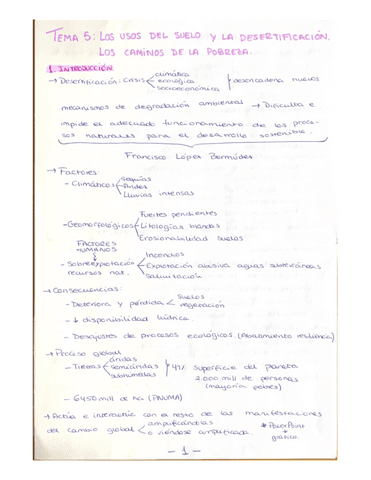 TEMA 5: LOS USOS DEL SUELO Y LA DESERTIFICACIÓN.
LOS CAMINOS DE LA POBREZA.
1. INTRODUCCIÓN
climática
→ Desertificación: Crisis ecológica desencadena nuevos
socioeconómica
mecanismos de degradación ambiental → Dificulta e
impide el adecuado funcionamiento de los proce-
sos naturales para el desarrollo sostenible.
Francisco López Bermúdez
→ Factores:
Sequías
- Climáticos Arides
Lluvias intensas
Fuertes pendientes
- Geomorfológicos Litologías blandas
Erosionabilidad suelos
FACTORES
HUMANOS
Incendios
- Sobreexplotación Explotación abusiva aguas subterráneas
recursos nat. Salinización
→ Consecuencias:
- Deteriora y pérdida suelos
vegetación
- ↓ disponibilidad hídrica.
- Desajustes de procesos ecológicos. (resiliencia)
→ Proceso global
áridas
- Tierras semiáridas 41% superficie del planeta
subhúmedas 2.000 mill de personas
(mayoría pobres)
- 6450 mill de ha (PNUMA)
→ Actúa e interactúa con el resto de las manifestaciones
del cambio global amplificándolas
o viéndose amplificada.
* PowerPoint
gráfico
- 1 -